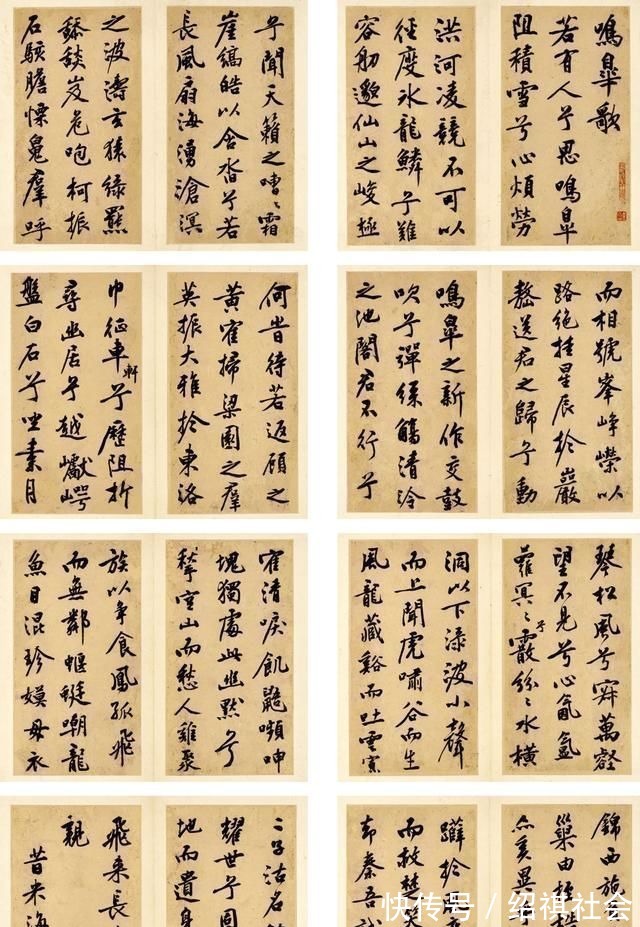 鳴皐歌
若有人兮思鳴皐
阻積雪兮心煩勞
洪河凌競不可以
徑度冰龍鱗兮難
容舠邈仙山之峻極
兮聞天籟之嘈々霜
崖縞皓以合沓兮若
長風扇海湧滄溟
之波濤玄猿綠羆
舔舕岌危咆柯振
石駭膽慄魄羣呼
而相號峯崢嶸以
路絕挂星辰於巖
嶅送君之歸兮動
鳴皐之新作交鼓
吹兮彈絲觴清泠
之池閣君不行兮
何昔待若返顧之
黃寉掃梁園之羣
英振大雅於東洛
巾征車軒兮歷阻折
尋幽居兮越巘崿
盤白石兮坐素月
琴松風兮寂萬壑
望不見兮心氤氳
蘿冥々兮霰紛々水橫
洞以下淥波小聲
而上聞虎嘯谷而生
風龍藏谿而吐雲寡
寉清唳飢鼯嚬呻
塊獨處此幽默兮
愀空山而愁人雞聚
族以爭食鳳孤飛
而無鄰蝘蜓嘲龍
魚目混珍嫫母衣
錦西施
巢由桎
亦奚異
躄於
而救楚笑
却秦吾
二子沽名
耀世兮固
地而遺身
飛來長
親
昔米海
快传号/绍祺社会